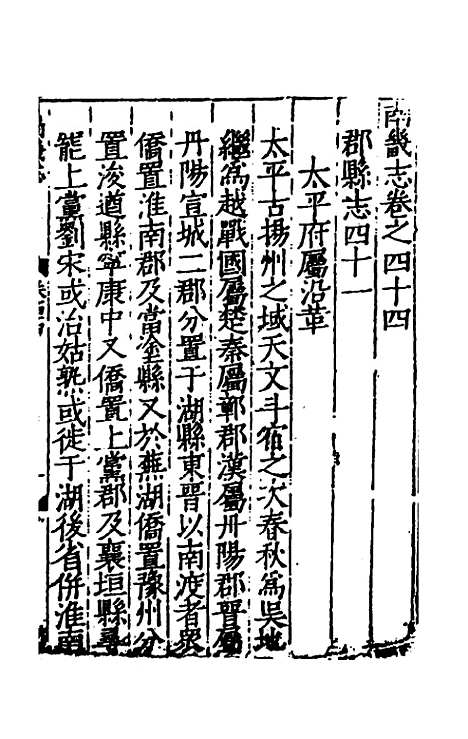 南畿志卷之四十四
郡縣志四十一
太平府屬沿革
太平古揚州之域天文斗宿之次春秋為吳地
繼為越戰國屬楚秦屬鄣郡漢屬丹陽郡晉屬
丹陽宣城二郡分置于湖縣東晉以南渡者衆
僑置淮南郡及當塗縣又於蕪湖僑置豫州分
置浚遒縣寧康中又僑置上黨郡及襄垣縣尋
罷上黨劉宋或治姑孰或徙于湖後省併淮南